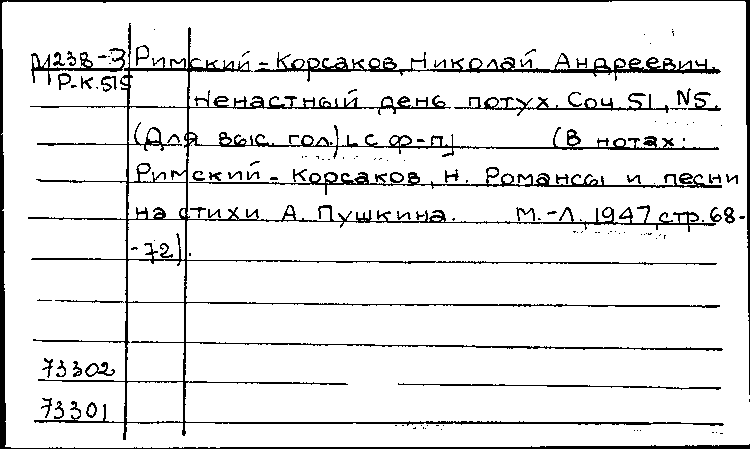 М238-3 Римский-Корсаков, Николай Андреевич.
Р-К.515
Ненастный день потух. Соч. 51, N5.
(Для выс. гол.) [с ф-п.] (В нотах:
Римский-Корсаков, Н. Романсы и песни
на стихи А. Пушкина. М.-Л., 1947, стр. 68-
-72).
73302
73301